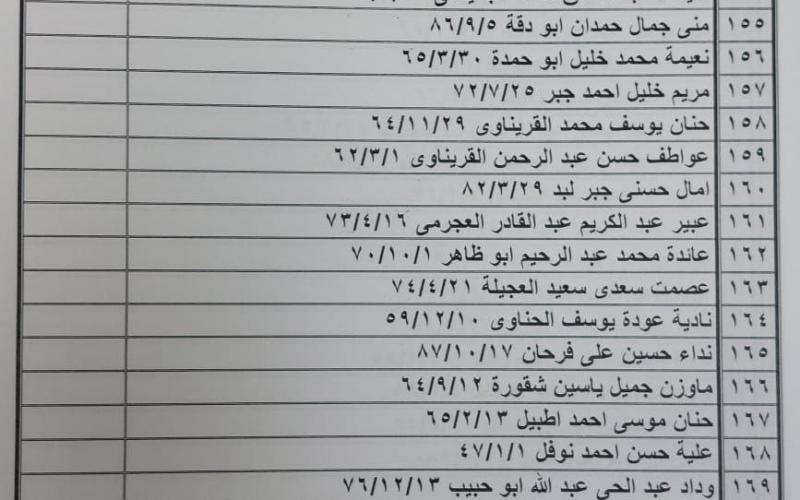 ١٥٥ منى جمال حمدان ابو دقة ٨٦/٩/٥
١٥٦ نعيمة محمد خليل ابو حمدة ٦٥/٣/٣٠
١٥٧ مريم خليل احمد جبر ٧٢/٧/٢٥
١٥٨ حنان يوسف محمد القريناوى ٦٤/١١/٢٩
١٥٩ عواطف حسن عبد الرحمن القريناوى ٦٢/٣/١
١٦٠ امال حسنى جبر لبد ٨٢/٣/٢٩
١٦١ عبير عبد الكريم عبد القادر العجرمى ٧٣/٤/١٦
١٦٢ عائدة محمد عبد الرحيم ابو ظاهر ٧٠/١٠/١
١٦٣ عصمت سعدى سعيد العجيلة ٧٤/٤/٢١
١٦٤ نادية عودة يوسف الحناوى ٥٩/١٢/١٠
١٦٥ نداء حسين على فرحان ٨٧/١٠/١٧
١٦٦ ماوزن جميل ياسين شقورة ٦٤/٩/١٢
١٦٧ حنان موسى احمد اطبيل ٦٥/٢/١٣
١٦٨ علية حسن احمد نوفل ٤٧/١/١
١٦٩ وداد عبد الحى عبد الله ابو حبيب ٧٦/١٢/١٣